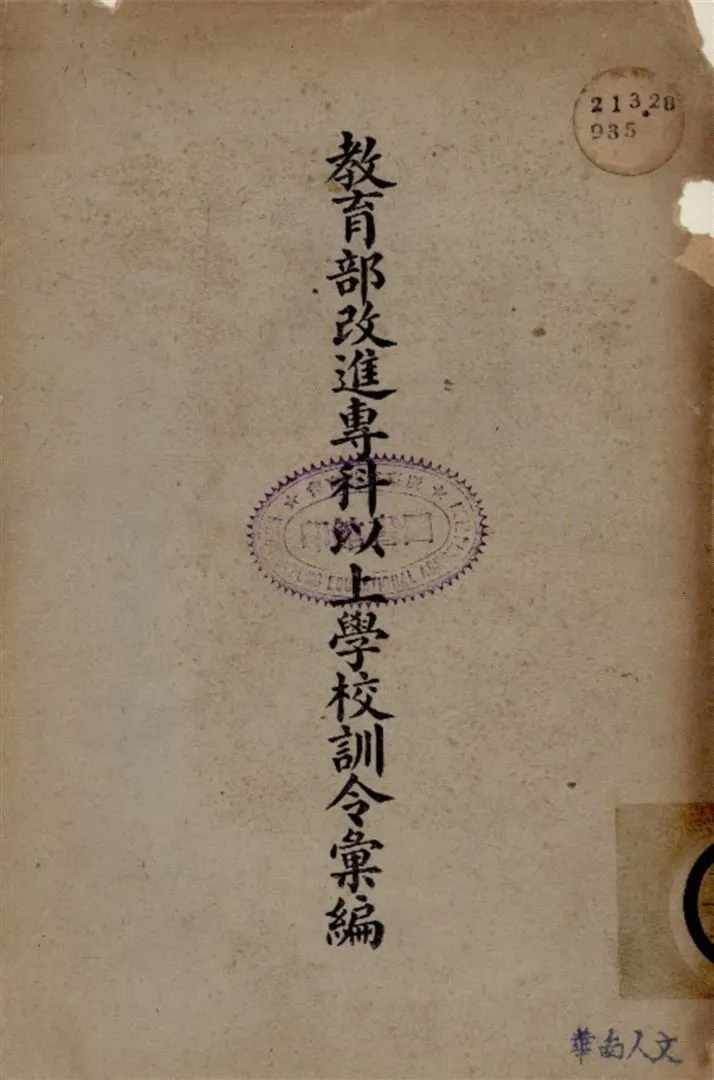 213.28
935
教育部改進專科以上學校訓令彙編
EDUCATIONAL
華南人文